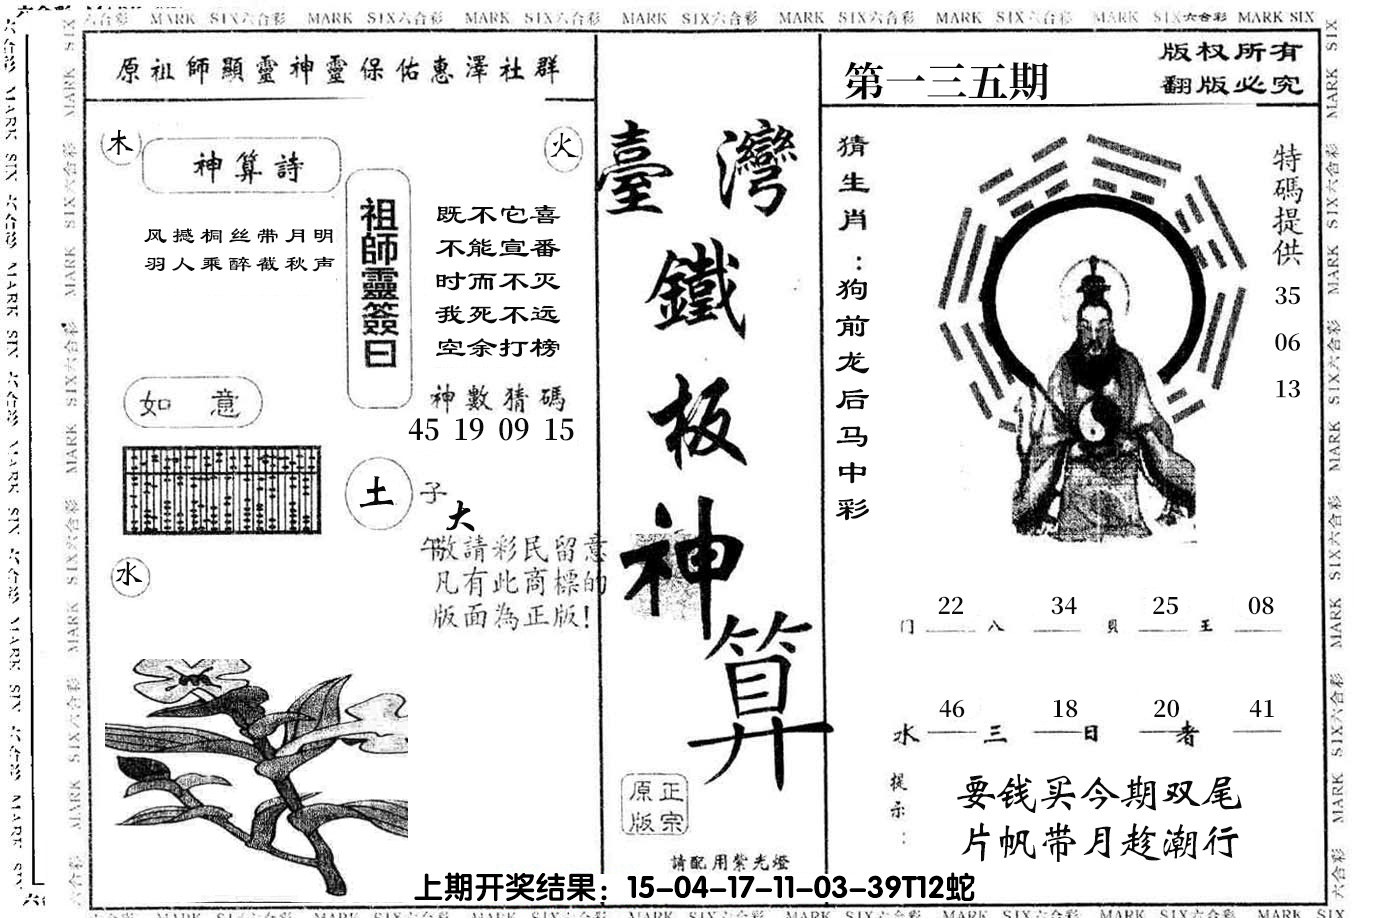 六合彩 MARK SIX六合彩 MARK SIX六合彩 MARK SIX六合彩 MARK SIX六合彩 MARK SIX六合彩 MARK SIX六合彩 MARK SIX六合彩 MARK SIX
原祖師顯靈神靈保佑惠澤社群
木
火
神算詩
风撼桐丝带月明
羽人乘醉截秋声
祖師靈簽曰
既不它喜
不能宣番
时而不灭
我死不远
空余打榜
如 意
神數猜碼
45 19 09 15
土
子
大
午
敬請彩民留意
凡有此商標的
版面為正版!
水
臺灣
鐵
板
神
算
正宗
原版
請配用紫光燈
第一三五期
版权所有
翻版必究
猜生肖:狗前龙后马中彩
特碼提供
35
06
13
门 22 八 34 貝 25 王 08
水 46 三 18 日 20 者 41
提示:
要钱买今期双尾
片帆带月趁潮行
上期开奖结果：15-04-17-11-03-39T12蛇